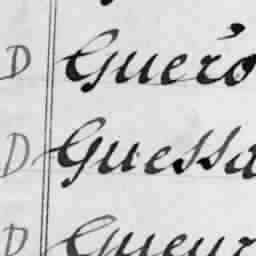 D Guero
D Guessa
D Gueur